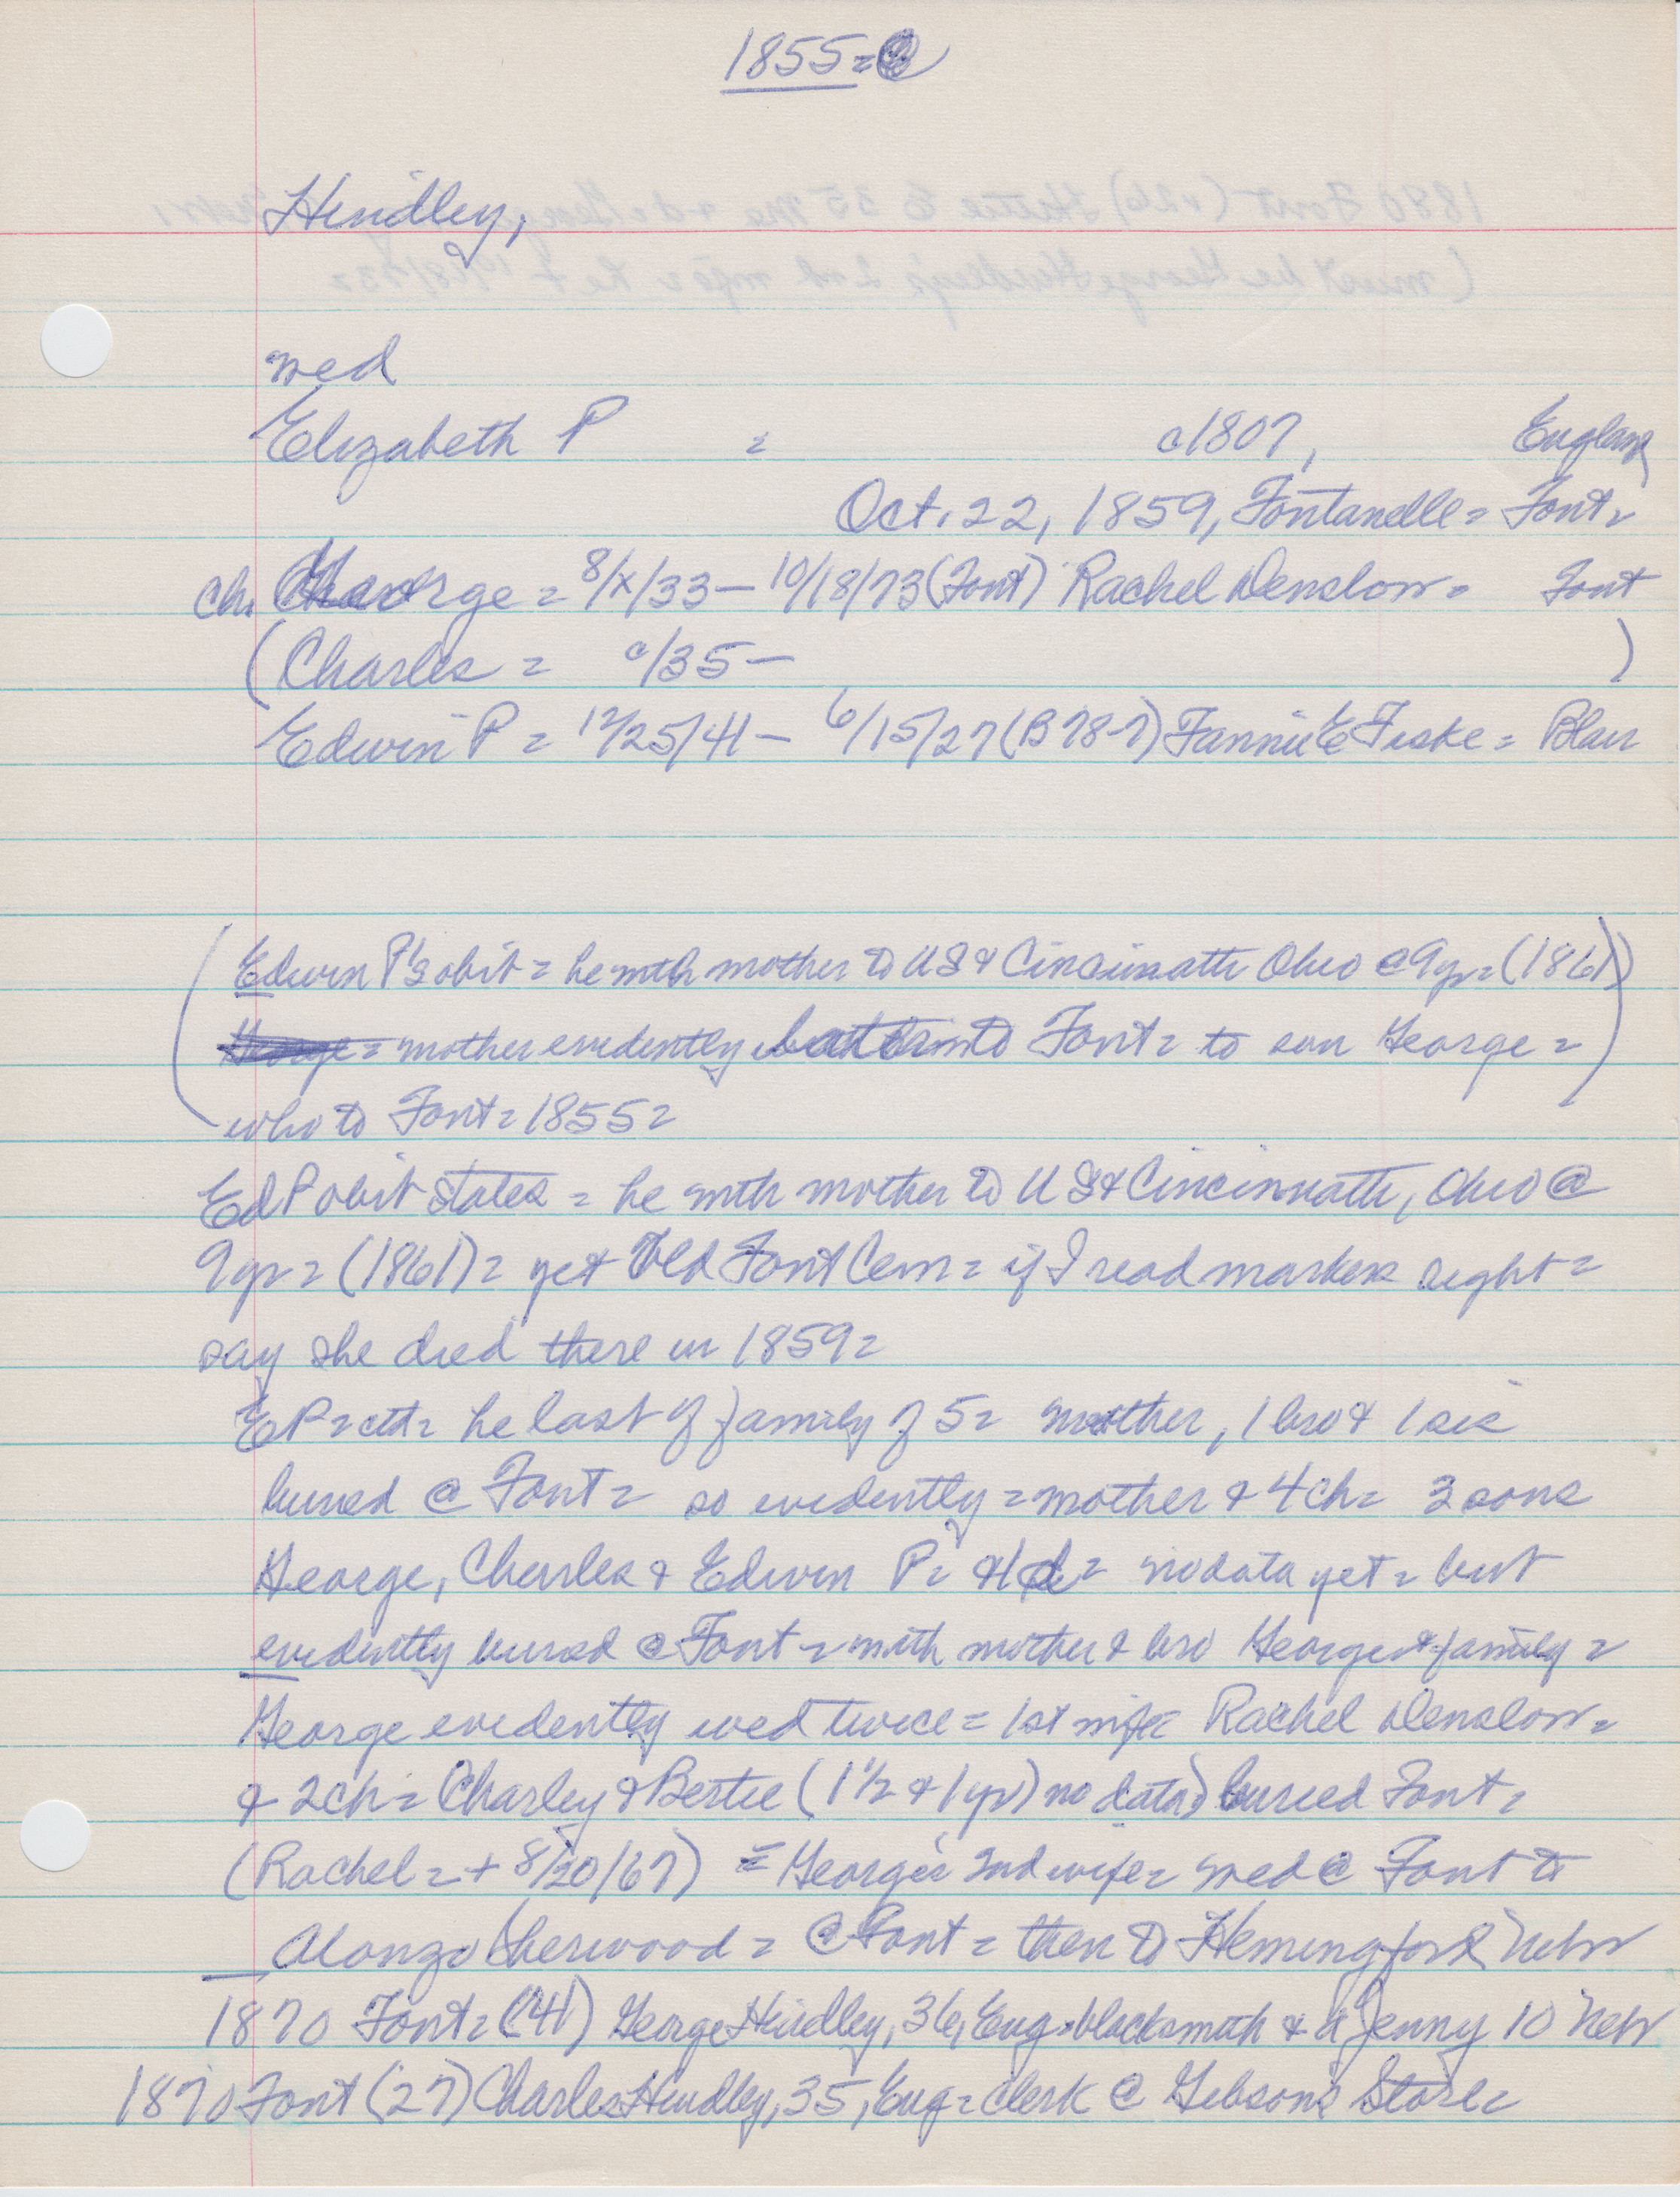 1855=
Hindley,
wed
Elizabeth P = c1807, England
Oct. 22, 1859, Fontanelle = Font=
ch. George = 8/x/33 — 10/18/73 (Font) Rachel Denslow = Font
(Charles = c/35 — )
Edwin P = 12/25/41 — 6/15/27 (B 78-7) Fannie E Fiske = Blair
(Edwin P's obit = he with mother to US & Cincinnatti Ohio @ 9yr = (1861)
mother evidently to Font = to son George =
who to Font = 1855=)
Ed P obit states = he with mother to US & Cincinnatti, Ohio @
9yr = (1861) = yet Old Font Cem = if I read markers right =
say she died there in 1859=
EP = ctd = he last of family of 5 = mother, 1 bro & 1 sis
buried @ Font = so evidently = mother & 4 ch = 3 sons
George, Charles & Edwin P = & 1 d = no data yet = but
evidently buried @ Font = with mother & bro George & family =
George evidently wed twice = 1st wife Rachel Denslow =
& 2 ch = Charley & Bertie (1 1/2 & 1 yr) no data) buried Font =
(Rachel = + 8/20/67) = George's 2nd wife = wed @ Font to
Alonzo Sherwood = @ Font = then to Hemingford Nebr
1870 Font = (41) George Hindley, 36, Eng = blacksmith & d Jenny 10 Nebr
1870 Font (27) Charles Hindley, 35, Eng = clerk @ Gibson's Store =